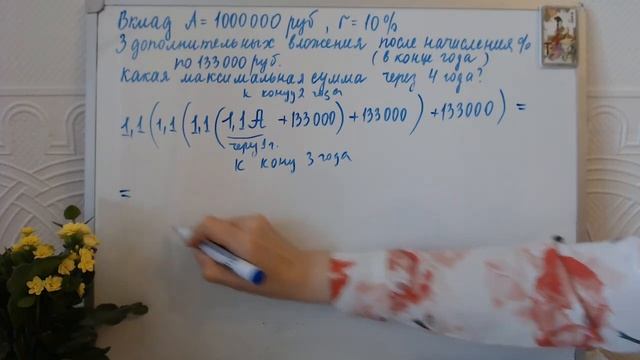 Вклад A = 1000000 руб, r = 10%
3 дополнительных вложения после начисления %
по 133000 руб. (в конце года)
Какая максимальная сумма через 4 года?
к концу 2 года
1,1(1,1(1,1(1,1A +133000)+133000)+133000) =
через 1 г.
к концу 3 года
=